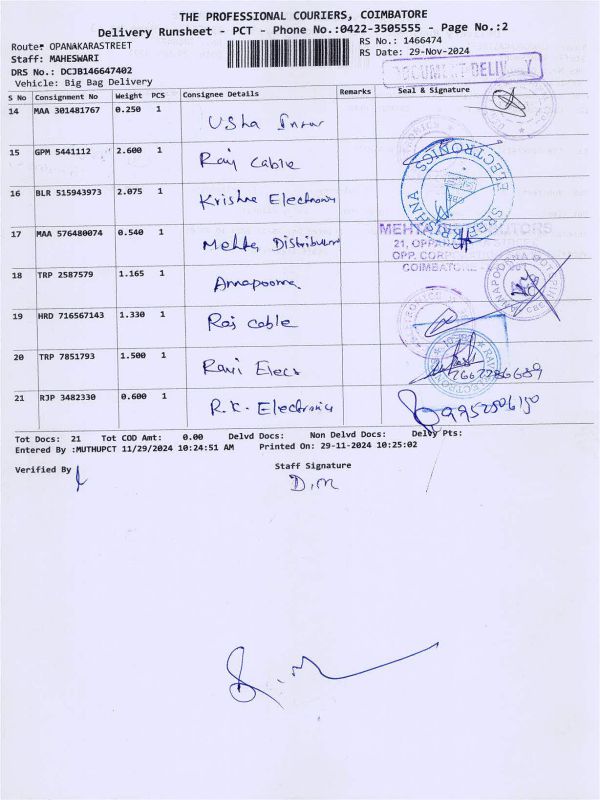 THE PROFESSIONAL COURIERS, COIMBATORE
Delivery Runsheet - PCT - Phone No.:0422-3505555 - Page No.:2
Route: OPANAKARASTREET
RS No.: 1466474
Staff: MAHESWARI
RS Date: 29-Nov-2024
DRS No.: DCJB146647402
Vehicle: Big Bag Delivery
DOCUMENT DELIV Y
S No Consignment No Weight PCS Consignee Details Remarks Seal & Signature
14 MAA 301481767 0.250 1 Usha
15 GPM 5441112 2.600 1 Raj Cable
16 BLR 515943973 2.075 1 Krishna Electronics
SREE KRISHNA ELECTRONICS
17 MAA 576480074 0.540 1 Mehta Distributors
MEHTA ORS
21, OPPA
OPP. CORP
COIMBATO
18 TRP 2587579 1.165 1 Annapoorna
19 HRD 716567143 1.330 1 Raj Cable
20 TRP 7851793 1.500 1 Ravi Elecs
21 RJP 3482330 0.600 1 R.K. Electronics
Tot Docs: 21 Tot COD Amt: 0.00 Delvd Docs: Non Delvd Docs: Delvy Pts:
Entered By :MUTHUPCT 11/29/2024 10:24:51 AM Printed On: 29-11-2024 10:25:02
Verified By
Staff Signature
D.M